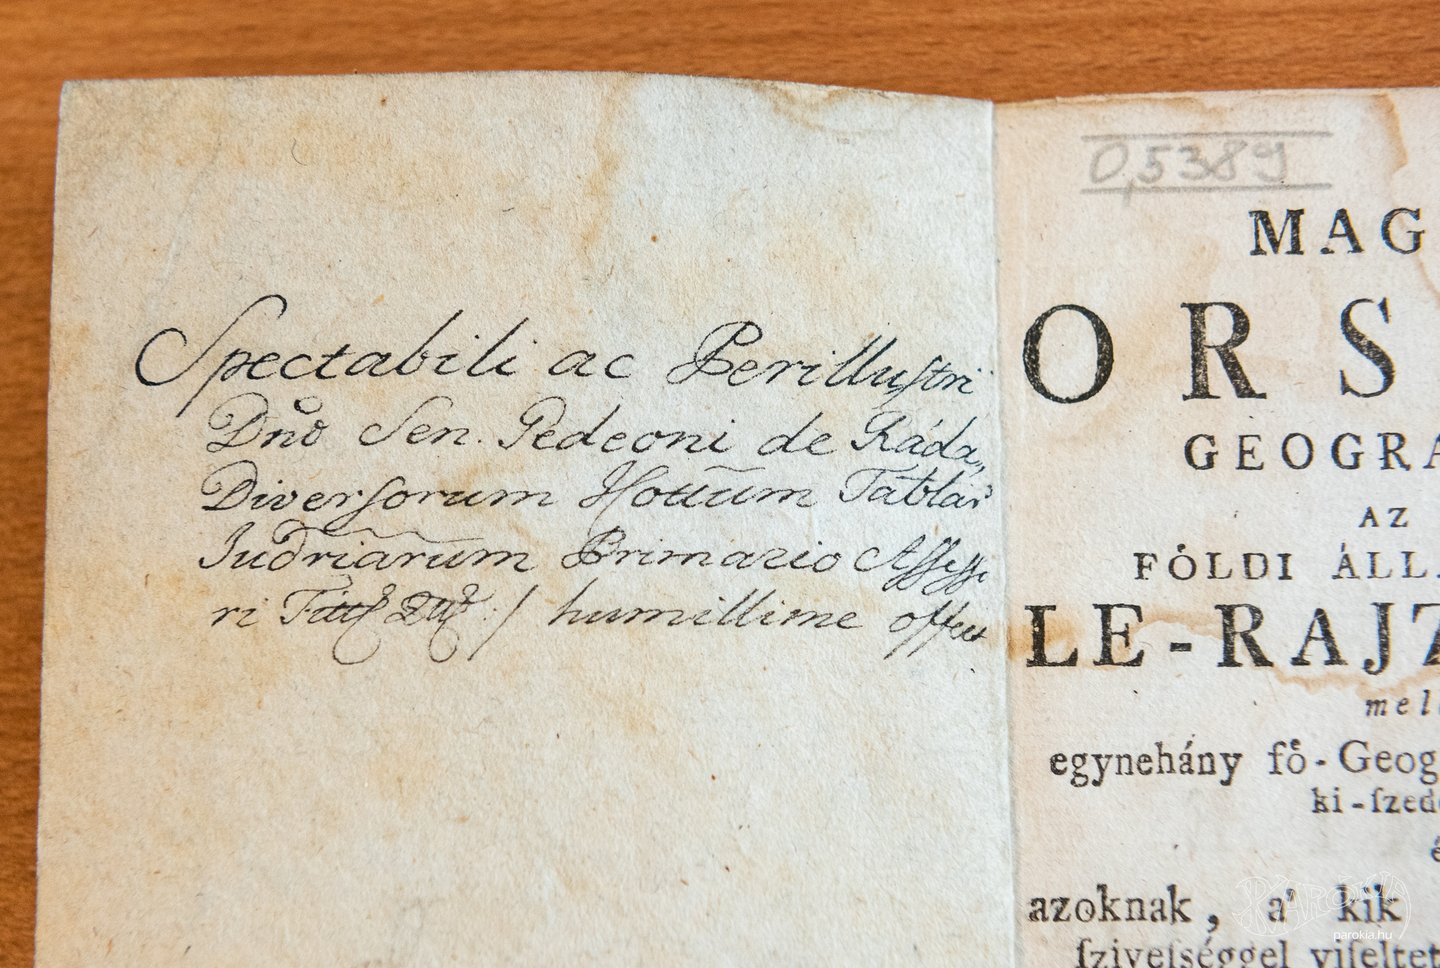 Spectabili ac Perillustri
Dnõ Sen. Pedeoni de Ráda„
Diversorum Hottum Tablar
Iudriarum Primario Assesso
ri humillime offert
0,5389
MAG
ORS
GEOGRA
AZ
FÖLDI ÁLL
LE-RAJZ
mel
egynehány fő-Geog
ki-ſzede
é
azoknak, a' kik
ſzivelséggel viſeltet
PARÓKIA
parokia.hu